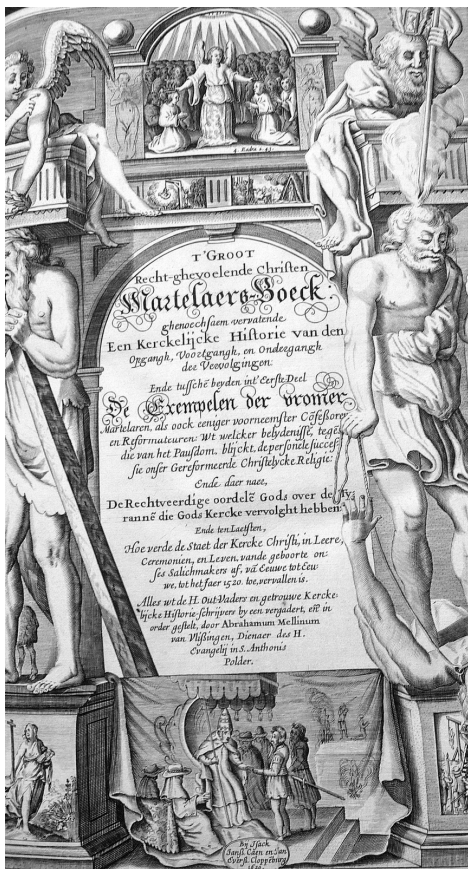 MARTELA
4. Esdra 2.43.
T'GROOT
Recht-ghevoelende Christen
Martelaers-Boeck:
ghenoechsaem vervatende
Een Kerckelijcke Historie van den
Opgangh, Voortgangh, en Ondergangh
der Vervolgingen:
Ende tusschē beyden int' Eerste Deel
De Exempelen der vromer
Martelaren, als oock eeniger voorneemster Cōfessoren
en Reformateuren: Wt welcker belydenisse, tegē
die van het Pausdom, blijckt, de personele succes-
sie onser Gereformeerde Christelycke Religie:
Ende daer naee,
De Rechtveerdige oordelē Gods over de Ty-
rannē die Gods Kercke vervolght hebben:
Ende ten Laetsten,
Hoe verde de Staet der Kercke Christi, in Leere,
Ceremonien, en Leven, vande geboorte on-
ses Salichmakers af, vā Eeuwe tot Eeu-
we, tot het Jaer 1520. toe, vervallen is.
Alles wt de H. Out-Vaders en getrouwe Kercke-
lijcke Historie-schrijvers by een vergadert, eñ in
order gestelt, door Abrahamum Mellinum
van Vlissingen, Dienaer des H.
Evangelij in S. Anthonis
Polder.
By Isack
Jansz. Caen en Jan
Everss. Cloppeburg